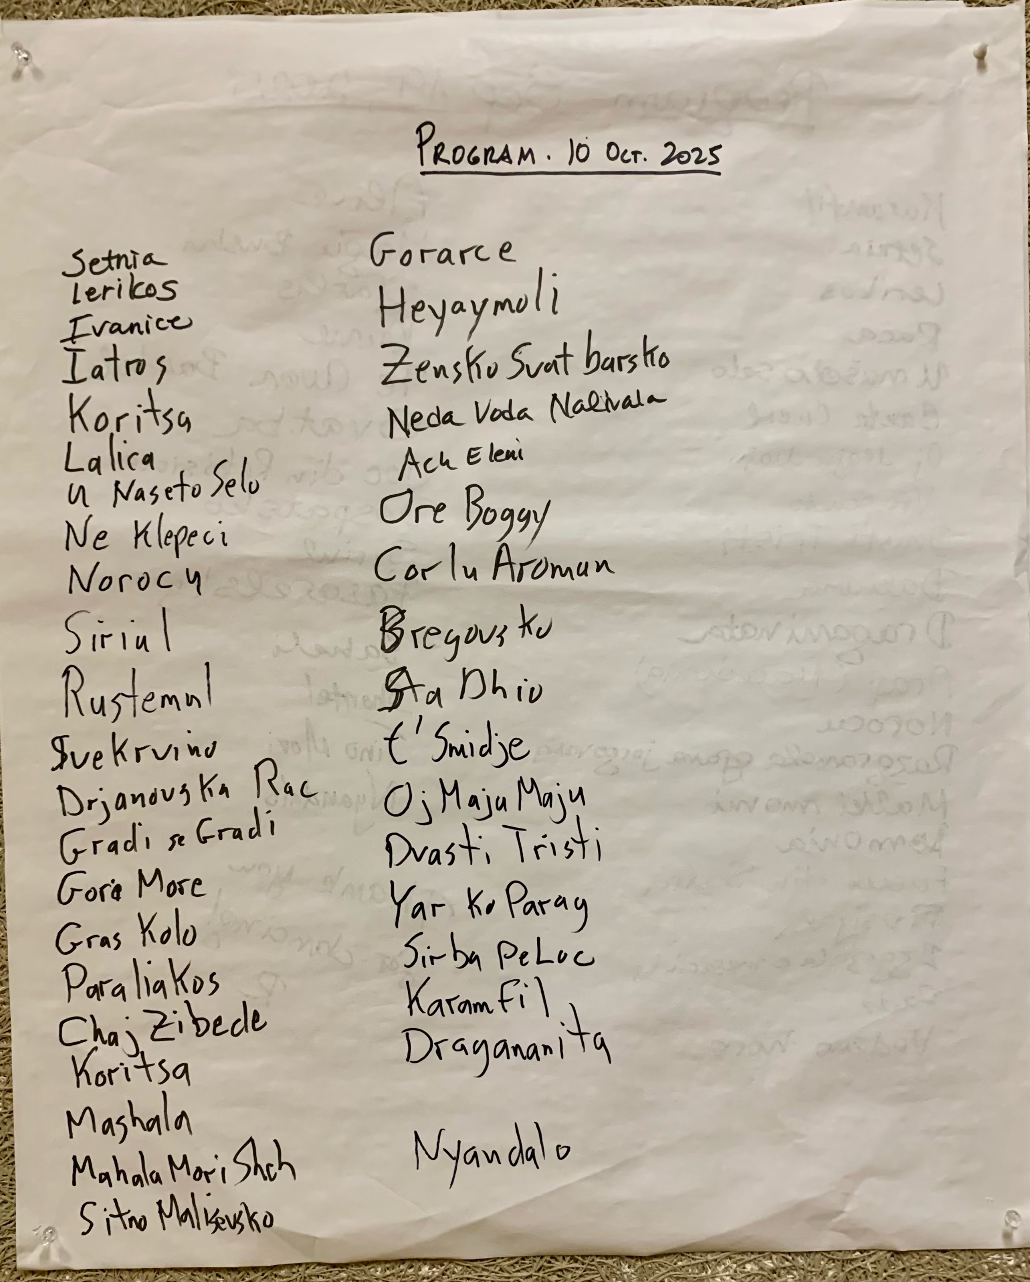 PROGRAM. 10 OCT. 2025
Setnia
Lerikos
Ivanice
Iatros
Koritsa
Lalica
U Naseto Selo
Ne Klepeci
Norocu
Siriul
Rustemul
Svekrvino
Drjanovska Rac
Gradi se Gradi
Gore More
Gras Kolo
Paraliakos
Chaj Zibede
Koritsa
Mashala
Mahala Mori Shch
Sitno Malisevsko
Gorarce
Heyaymoli
Zensko Svatbarsko
Neda Voda Nalivala
Ach Eleni
Ore Boggy
Corlu Aroman
Bregovsko
Sta Dhio
t' Smidje
Oj Maju Maju
Dvasti Tristi
Yar Ko Parag
Sirba Pe Loc
Karamfil
Dragananita
Nyandalo